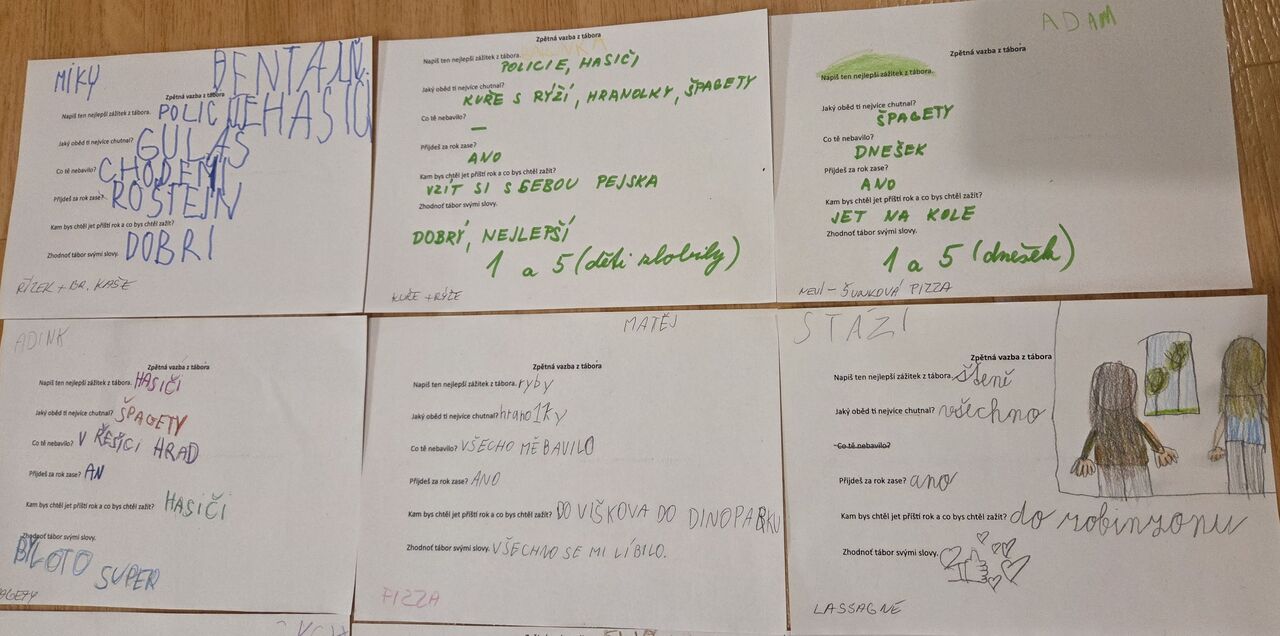 MÍKY
BENTAJN.
Zpětná vazba z tábora
Napiš ten nejlepší zážitek z tábora. POLICIJEHASIČI
Jaký oběd ti nejvíce chutnal? GULAŠ
Co tě nebavilo? CHOĎENI
Přijdeš za rok zase? ROŠTEJN
Kam bys chtěl jet příští rok a co bys chtěl zažít?
Zhodnoť tábor svými slovy. DOBRI
ŘÍZEK + BR. KAŠE
Zpětná vazba z tábora
Napiš ten nejlepší zážitek z tábora.
POLICIE, HASIČI
Jaký oběd ti nejvíce chutnal?
KUŘE S RÝŽÍ, HRANOLKY, ŠPAGETY
Co tě nebavilo?
—
Přijdeš za rok zase?
ANO
Kam bys chtěl jet příští rok a co bys chtěl zažít?
VZÍT SI S SEBOU PEJSKA
Zhodnoť tábor svými slovy.
DOBRÝ, NEJLEPŠÍ
1 a 5 (děti zlobily)
KUŘE + RÝŽE
ADAM
Napiš ten nejlepší zážitek z tábora.
Jaký oběd ti nejvíce chutnal?
ŠPAGETY
Co tě nebavilo?
DNEŠEK
Přijdeš za rok zase?
ANO
Kam bys chtěl jet příští rok a co bys chtěl zažít?
JET NA KOLE
Zhodnoť tábor svými slovy.
1 a 5 (dnešek)
NEVÍ - ŠUNKOVÁ PIZZA
ADINK
Zpětná vazba z tábora
Napiš ten nejlepší zážitek z tábora. HASIČI
Jaký oběd ti nejvíce chutnal? ŠPAGETY
Co tě nebavilo? V ŘEŠICI HRAD
Přijdeš za rok zase? AN
Kam bys chtěl jet příští rok a co bys chtěl zažít? HASIČI
Zhodnoť tábor svými slovy.
BYLOTO SUPER
MATĚJ
Zpětná vazba z tábora
Napiš ten nejlepší zážitek z tábora. ryby
Jaký oběd ti nejvíce chutnal? hranolky
Co tě nebavilo? VŠECHO MĚ BAVILO
Přijdeš za rok zase? ANO
Kam bys chtěl jet příští rok a co bys chtěl zažít? DO VIŠKOVA DO DINOPARKU
Zhodnoť tábor svými slovy. VŠECHNO SE MI LÍBILO.
PIZZA
STÁZI
Zpětná vazba z tábora
Napiš ten nejlepší zážitek z tábora. štěně
Jaký oběd ti nejvíce chutnal? všechno
Co tě nebavilo?
Přijdeš za rok zase? ano
Kam bys chtěl jet příští rok a co bys chtěl zažít? do robinzonu
Zhodnoť tábor svými slovy.
LASSAGNE